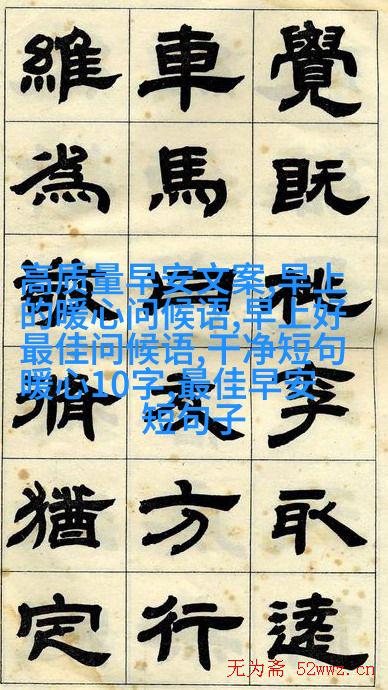 覺既李取達
車馬方行
維為猶定
高质量早安文案,早上
的暖心问候语,早上好
最佳问候语,干净短句
暖心10字,最佳早安
短句子
无为斋 52wwz.cn